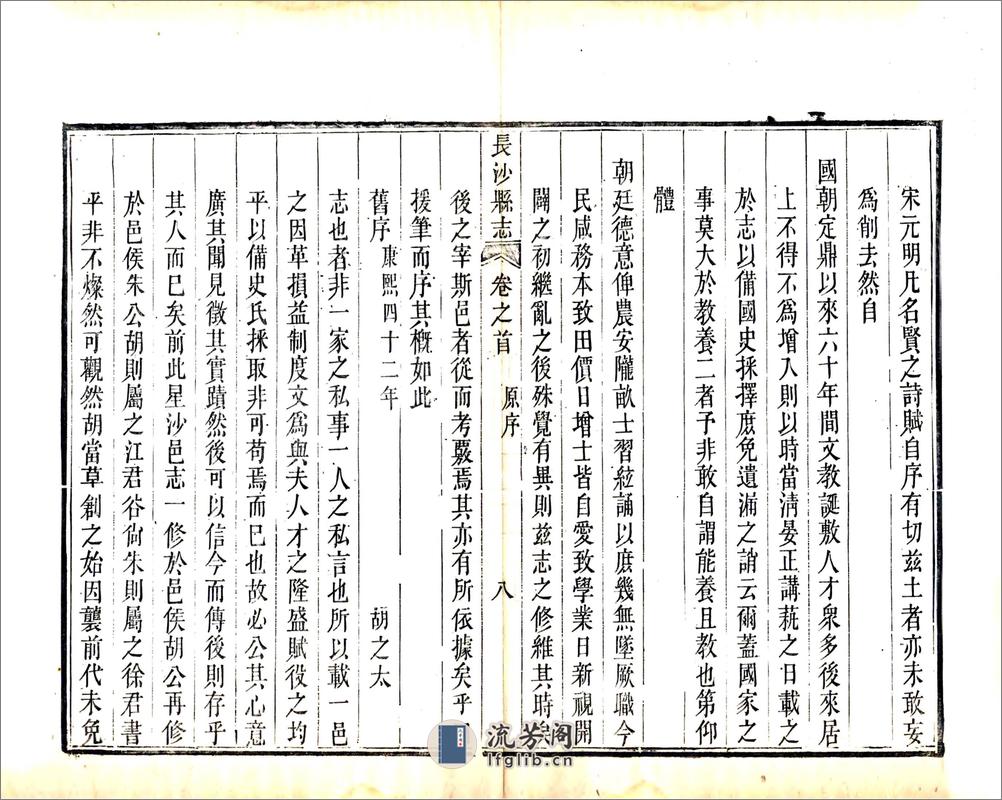 宋元明凡名賢之詩賦自序有切兹土者亦未敢妄
為削去然自
國朝定鼎以來六十年間文教誕敷人才衆多後來居
上不得不為增入則以時當淸晏正講蓺之日載之
於志以備國史採擇庶免遺漏之誚云爾蓋國家之
事莫大於教養二者予非敢自謂能養且教也第仰
體
朝廷德意俾農安隴畝士習絃誦以庶幾無墜厥職今
民咸務本致田價日增士皆自愛致學業日新視開
闢之初繼亂之後殊覺有異則兹志之修維其時矣
長沙縣志 卷之首 原序 八
後之宰斯邑者從而考覈焉其亦有所依據矣乎
援筆而序其槪如此
舊序 康熙四十二年 胡之太
志也者非一家之私事一人之私言也所以載一邑
之因革損益制度文為與夫人才之隆盛賦役之均
平以備史氏採取非可苟焉而已也故必公其心意
廣其聞見徵其實蹟然後可以信今而傳後則存乎
其人而已矣前此星沙邑志一修於邑侯胡公再修
於邑侯朱公胡則屬之江君谷尙朱則屬之徐君書
平非不燦然可觀然胡當草創之始因襲前代未免
流芳阁
lfglib.cn